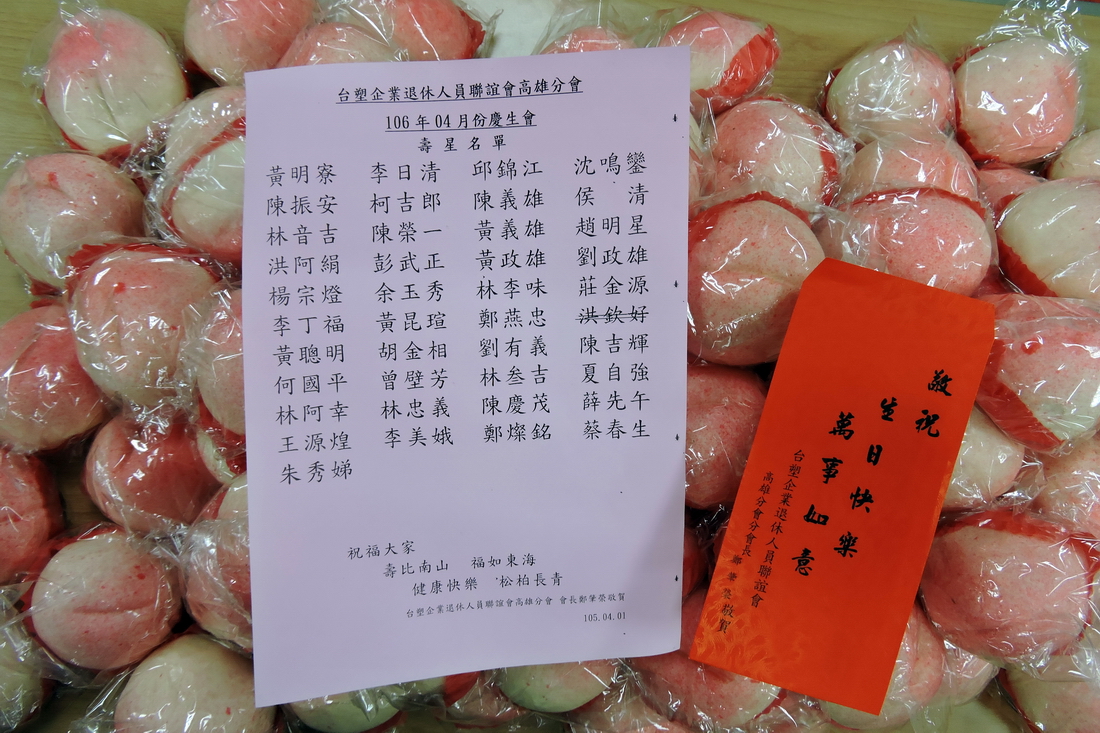 台塑企業退休人員聯誼會高雄分會
106 年 04 月份慶生會
壽星名單
黃明寮 李日清 邱錦江 沈鳴鑾
陳振安 柯吉郎 陳義雄 侯 清
林音吉 陳榮一 黃義雄 趙明星
洪阿絹 彭武正 黃政雄 劉政雄
楊宗燈 余玉秀 林李味 莊金源
李丁福 黃昆瑄 鄭燕忠 洪欽好
黃聰明 胡金相 劉有義 陳吉輝
何國平 曾壁芳 林叁吉 夏自強
林阿幸 林忠義 陳慶茂 薛先午
王源煌 李美娥 鄭燦銘 蔡春生
朱秀娣
祝福大家
壽比南山 福如東海
健康快樂 松柏長青
台塑企業退休人員聯誼會高雄分會 會長鄭肇榮敬賀
105.04.01
敬祝
生日快樂
萬事如意
台塑企業退休人員聯誼會
高雄分會分會長 鄭肇榮敬賀